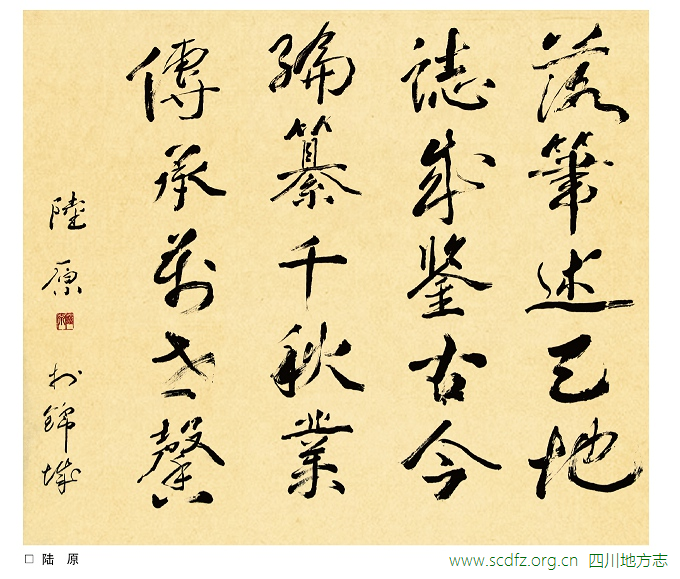 落筆述天地
誌成鑒古今
編纂千秋業
傳承萬世馨
陸原 於錦城
□ 陆 原
www.scdfz.org.cn 四川地方志